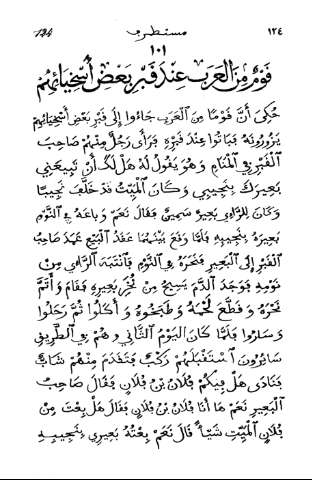 ١٢٤ مستطرف 124
١٠١
قَوْمٌ مِنَ الْعَرَبِ عِنْدَ قَبْرِ بَعْضِ أَسْخِيَائِهِمْ
حُكِىَ أَنَّ قَوْمًا مِنَ الْعَرَبِ جَاءُوا إِلَى قَبْرِ بَعْضِ أَسْخِيَائِهِمْ
يَزُورُونَهُ فَبَاتُوا عِنْدَ قَبْرِهِ فَرَأَى رَجُلٌ مِنْهُمْ صَاحِبَ
الْقَبْرِ فِي الْمَنَامِ وَهُوَ يَقُولُ لَهُ هَلْ لَكَ أَنْ تَبِيعَنِي
بَعِيرَكَ بِنَجِيبِي وَكَانَ الْمَيِّتُ قَدْ خَلَّفَ نَجِيبًا
وَكَانَ لِلرَّاءِي بَعِيرٌ سَمِينٌ فَقَالَ نَعَمْ وَبَاعَهُ فِي النَّوْمِ
بَعِيرَهُ بِنَجِيبِهِ فَلَمَّا وَقَعَ بَيْنَهُمَا عَقْدُ الْبَيْعِ عَمَدَ صَاحِبُ
الْقَبْرِ إِلَى الْبَعِيرِ فَنَحَرَهُ فِي النَّوْمِ فَانْتَبَهَ الرَّاءِي مِنْ
نَوْمِهِ فَوَجَدَ الدَّمَ يَسِيحُ مِنْ نَحْرِ بَعِيرِهِ فَقَامَ وَأَتَمَّ
نَحْرَهُ وَقَطَّعَ لَحْمَهُ وَطَبَخُوهُ وَأَكَلُوا ثُمَّ رَحَلُوا
وَسَارُوا فَلَمَّا كَانَ الْيَوْمُ الثَّانِي وَهُمْ فِي الطَّرِيقِ
سَائِرُونَ اسْتَقْبَلَهُمْ رَكْبٌ فَتَقَدَّمَ مِنْهُمْ شَابٌّ
فَنَادَى هَلْ فِيكُمْ فُلَانُ بْنُ فُلَانٍ فَقَالَ صَاحِبُ
الْبَعِيرِ نَعَمْ هَا أَنَا فُلَانُ بْنُ فُلَانٍ فَقَالَ هَلْ بِعْتَ مِنْ
فُلَانٍ الْمَيِّتِ شَيْأً قَالَ نَعَمْ بِعْتُهُ بَعِيرِي بِنَجِيبِهِ